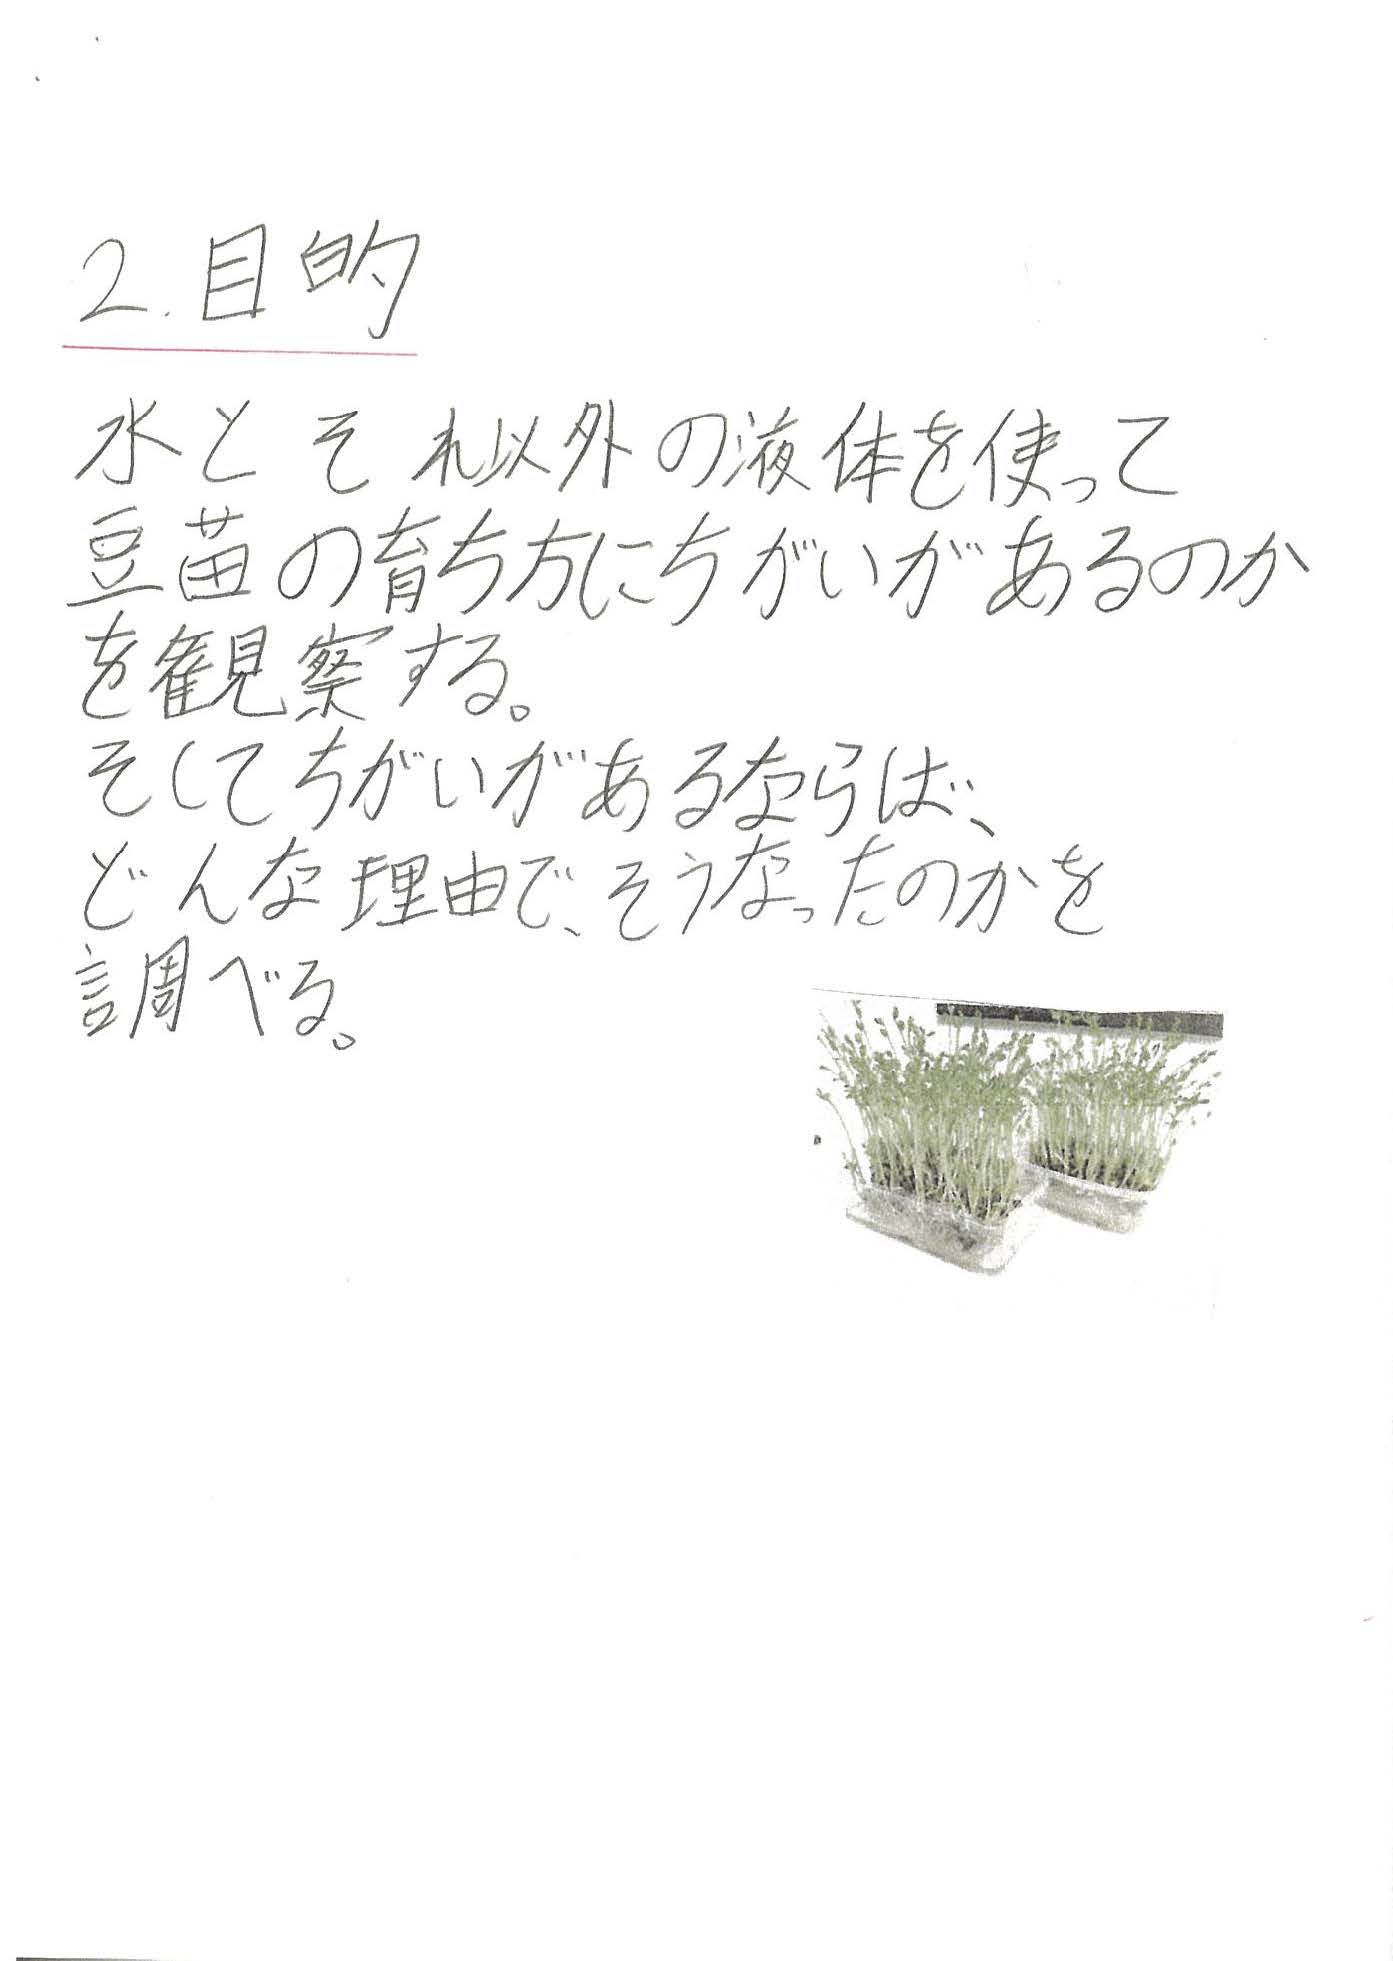 2.目的
水とそれ以外の液体を使って
豆苗の育ち方にちがいがあるのか
を観察する。
そしてちがいがあるならば、
どんな理由で、そうなったのかを
調べる。